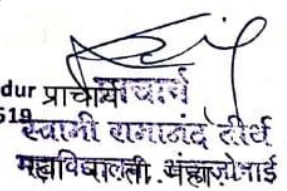 dur प्राचार्य प्राचार्य
519
स्वामी रामानंद तीर्थ
महाविद्यालय, अंबाजोगाई